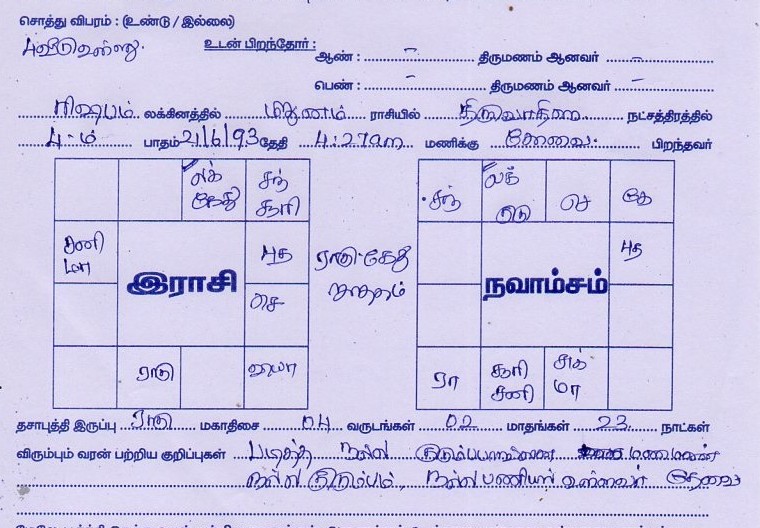 சொத்து விபரம் : (உண்டு / இல்லை)
உடன் பிறந்தோர் :
ஆண் : – திருமணம் ஆனவர் –
பெண் : – திருமணம் ஆனவர் –
ரிஷபம் லக்கினத்தில் மிதுனம் ராசியில் திருவாதிரை நட்சத்திரத்தில்
4-ம் பாதம் 21/6/93 தேதி 4:27am மணிக்கு கோவை. பிறந்தவர்
லக் கேது சந் சூரி
சனி மா புத
இராசி
செ
ராகு வியா
ராகு-கேது
சந் லக் குரு செ கே
புத
நவாம்சம்
ரா சூரி சனி சுக் மா
தசாபுத்தி இருப்பு ராகு மகாதிசை 04 வருடங்கள் 02 மாதங்கள் 23 நாட்கள்
விரும்பும் வரன் பற்றிய குறிப்புகள் படித்த நல்ல மணமகன்
நல்ல குடும்பம், நல்ல பணியில் உள்ளவர் தேவை